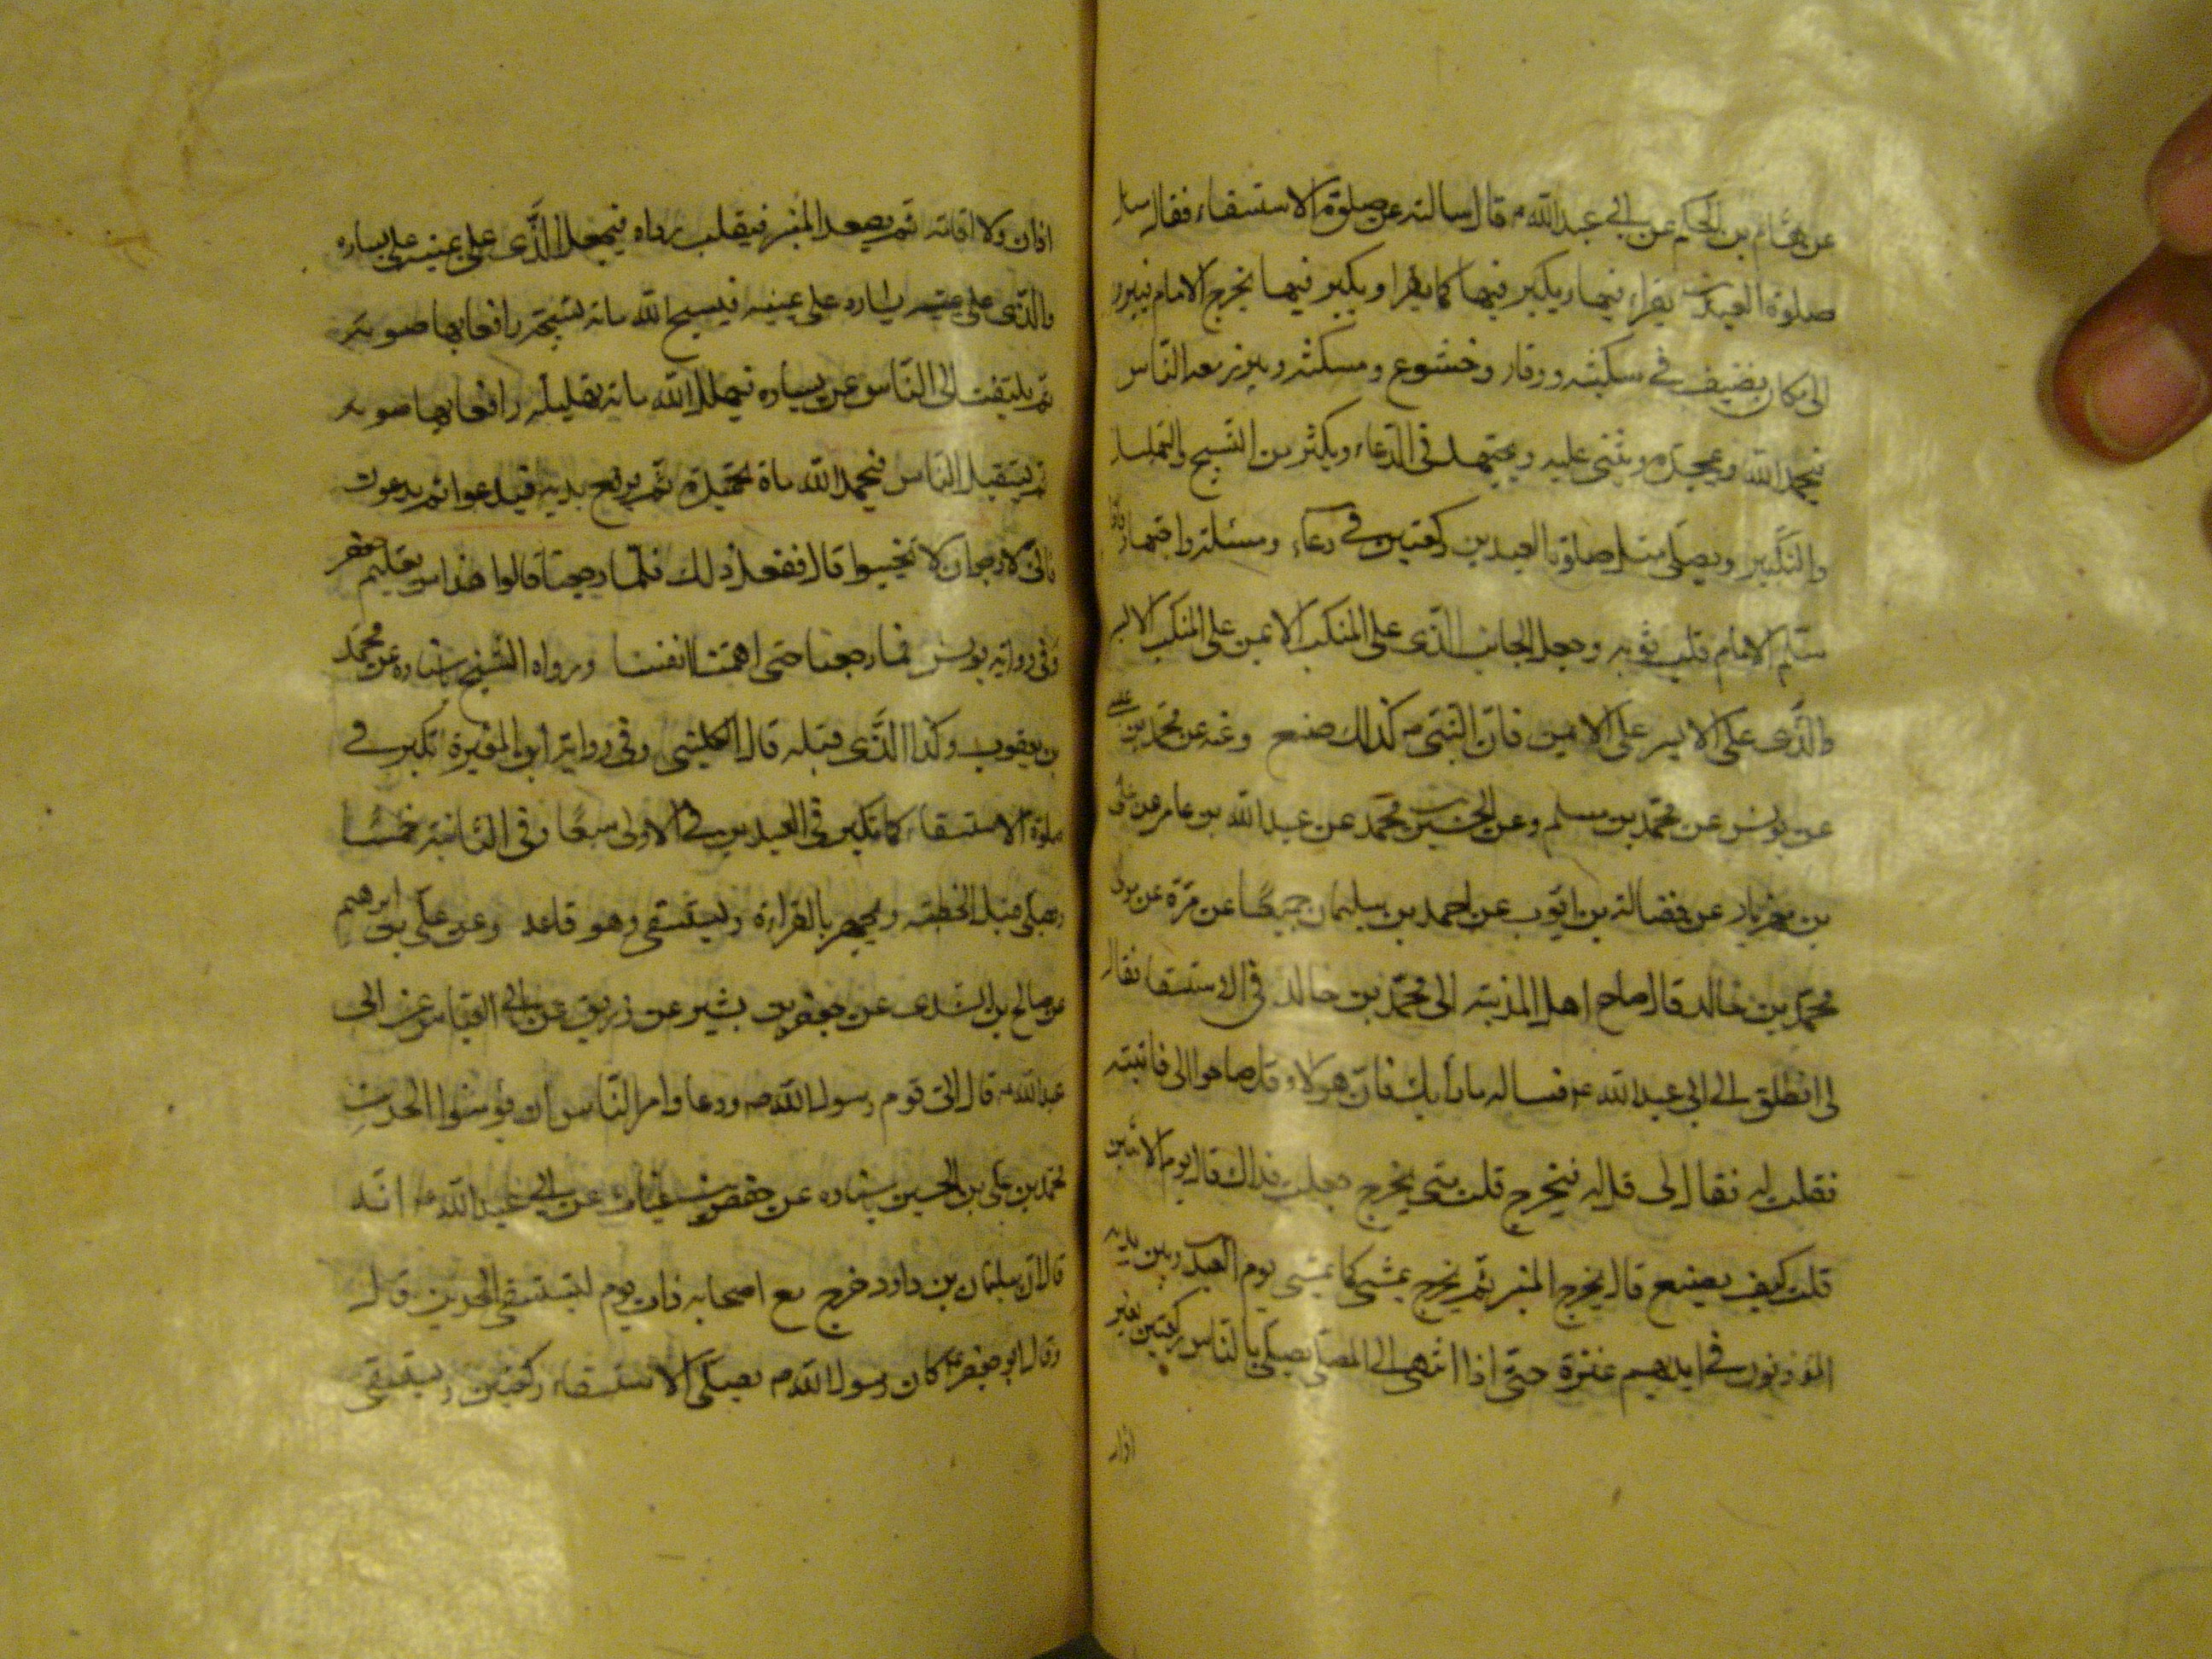 عن هشام بن الحكم عن ابي عبد الله ع قال سالته عن صلوة الاستسقاء فقال مثل
صلوة العيدين يقراء فيها ويكبر فيها كما يقرا ويكبر فيها يخرج الامام فيبرز
الى مكان نضيف في سكينه ووقار وخشوع ومسكنه ويبرز معه النّاس
فيحمد الله ويمجّده ويثنى عليه ويجتهد فى الدّعاء ويكثر من التّسبيح والتهليل
والتّكبير ويصلى مثل صلوة العيدين ركعتين في دعاء ومسئلة واجتهاد فاذا
سلّم الامام قلب ثوبه وجعل الجانب الذّى على المنكب الايمن على المنكب الايسر
والّذى على الايسر على الايمن فانّ النّبى ص كذلك صنع وعنه عن محمّد بن عيسى
عن يونس عن محمّد بن مسلم وعن الحسين بن محمّد عن عبد الله بن عامر عن على
بن مهزيار عن فضالة بن ايّوب عن احمد بن سليمان جميعًا عن مرّة مولى
محمّد بن خالد قال صاح اهل المدينة الى محمّد بن خالد فى الاستسقا فقال
لى انطلق الى ابى عبد الله ع فساله ما رأيك فانّ هولاء قد صاحوا الى فاتيته
فقلت له فقال لى قل له فليخرج قلت متى يخرج جعلت فداك قال يوم الاثنين
قلت كيف يصنع قال يخرج المنبر ثم يخرج يمشى كما يمشى يوم العيدين وبين يديه
المؤذنون في ايديهم عنزة حتّى اذا انتهى الى المصلّى يصلى بالنّاس ركعتين بغير
اذان
اذان ولا اقامة ثم يصعد المنبر فيقلب رداه فيجعل الّذى على يمينه على يساره
والّذى على يساره على يمينه فيسبح الله مائة تسبيحة رافعا بها صوته
ثم يلتفت الى النّاس عن يساره فيهلل الله مائة تهليلة رافعا بها صوته
ثم يستقبل النّاس فيحمد الله ماة تحميدة ثم يرفع يديه فيدعوا ثم يدعون
فانى لارجو ان لا تخيبوا قال ففعل ذلك فلمّا رجعنا قالوا هذا من تعليم جعفر
وفى رواية يونس فما رجعنا حتى اهمّتنا انفسنا ورواه الشيخ باسناده عن محمّد
بن يعقوب وكذا الّذى قبله قال الكلينى وفى رواية ابن المغيرة تكبر في
صلوة الاستسقاء كما تكبر فى العيدين في الاولى سبعًا وفى الثانية خمسًا
ويصلى قبل الخطبة ويجهر بالقراءة ويستسقى وهو قاعد وعن علّى بن ابرهيم
عن صالح بن السّندى عن جعفر بن بشير عن زريق عن ابى العبّاس عن ابى
عبد الله ع قال اتى قوم رسول الله ص ودعا وامر النّاس ان يؤمنوا الحديث
محمّد بن على بن الحسين باسناده عن حفص بن غياث عن ابى عبد الله ع انّه
قال انّ سليمان بن داود خرج مع اصحابه ذات يوم ليستسقى الحديث قال
وقال ابو جعفر ع كان رسول الله ص يصلّى الاستسقاء ركعتين ويستسقى